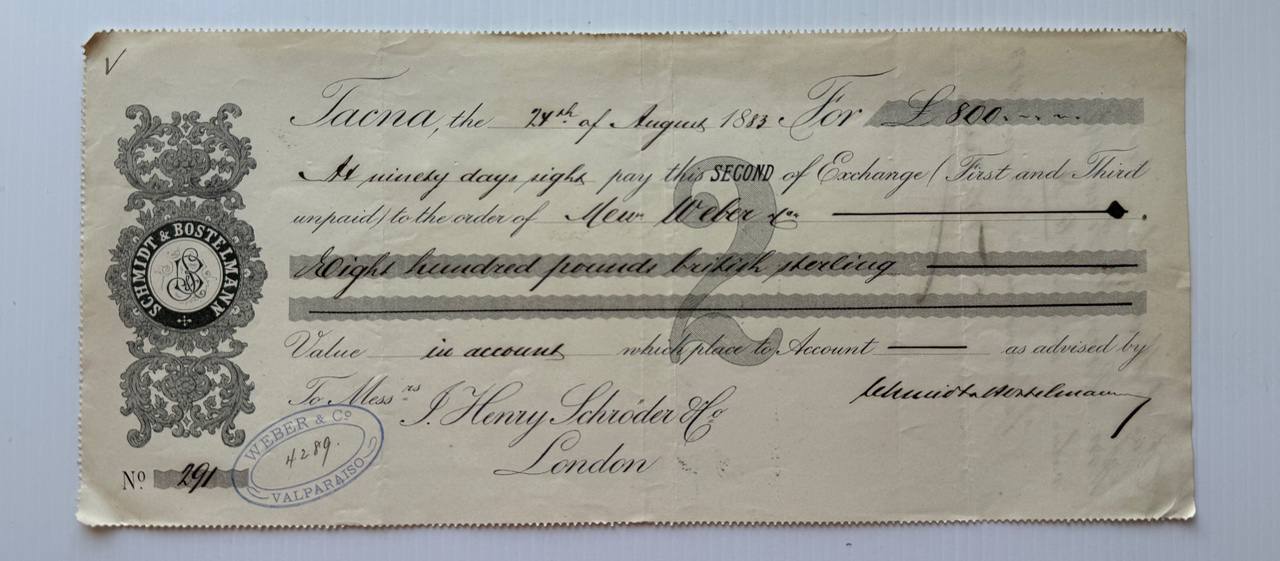 Tacna, the 24th of August 1883 For £ 800.----
At ninety days sight pay this SECOND of Exchange (First and Third
unpaid) to the order of Messrs Weber & Co
Eight hundred pounds british sterling
Value in account which place to Account as advised by
To Messrs J. Henry Schröder & Co
London
Schmidt & Bostelmann
SCHMIDT & BOSTELMANN
SB
2
No. 291
WEBER & Co
4289.
VALPARAISO